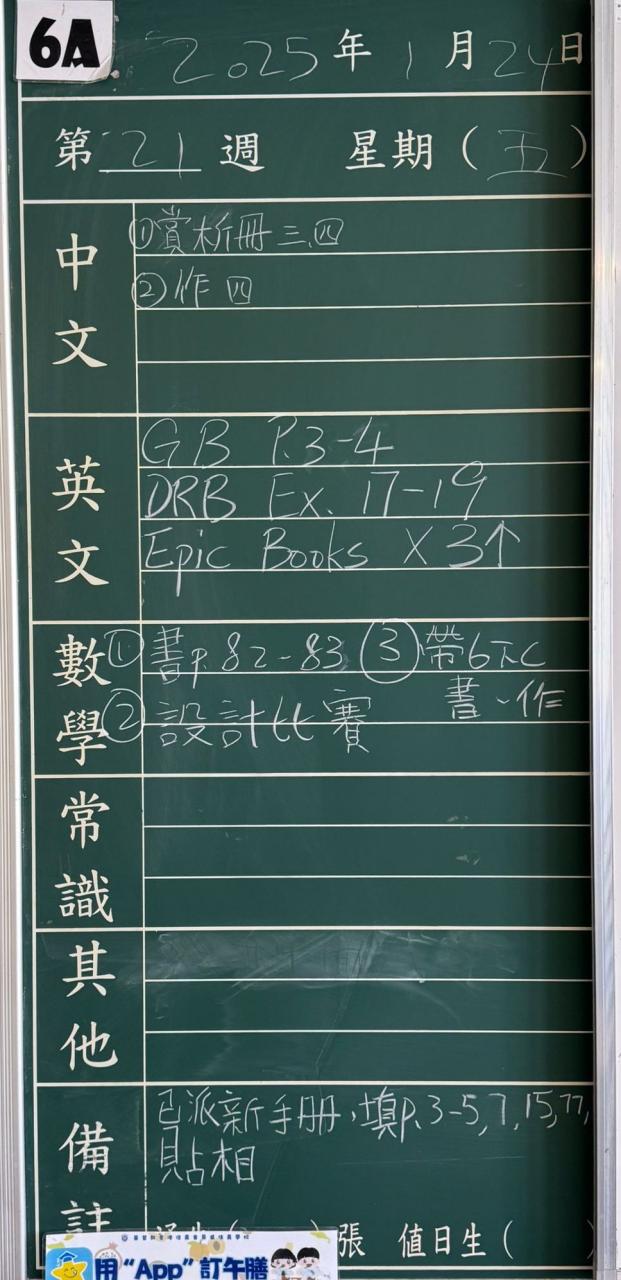 6A
2025年1月24日
第21週 星期(五)
中文
①賞析冊三、四
②作四
英文
GB P.3-4
DRB Ex. 17-19
Epic Books ×3↑
數學
①書P.82-83 ③帶6下C
書、作
②設計比賽
常識
其他
備註
已派新手册,填P.3-5,7,15,77,
貼相
張 值日生( )
用“App”訂午膳